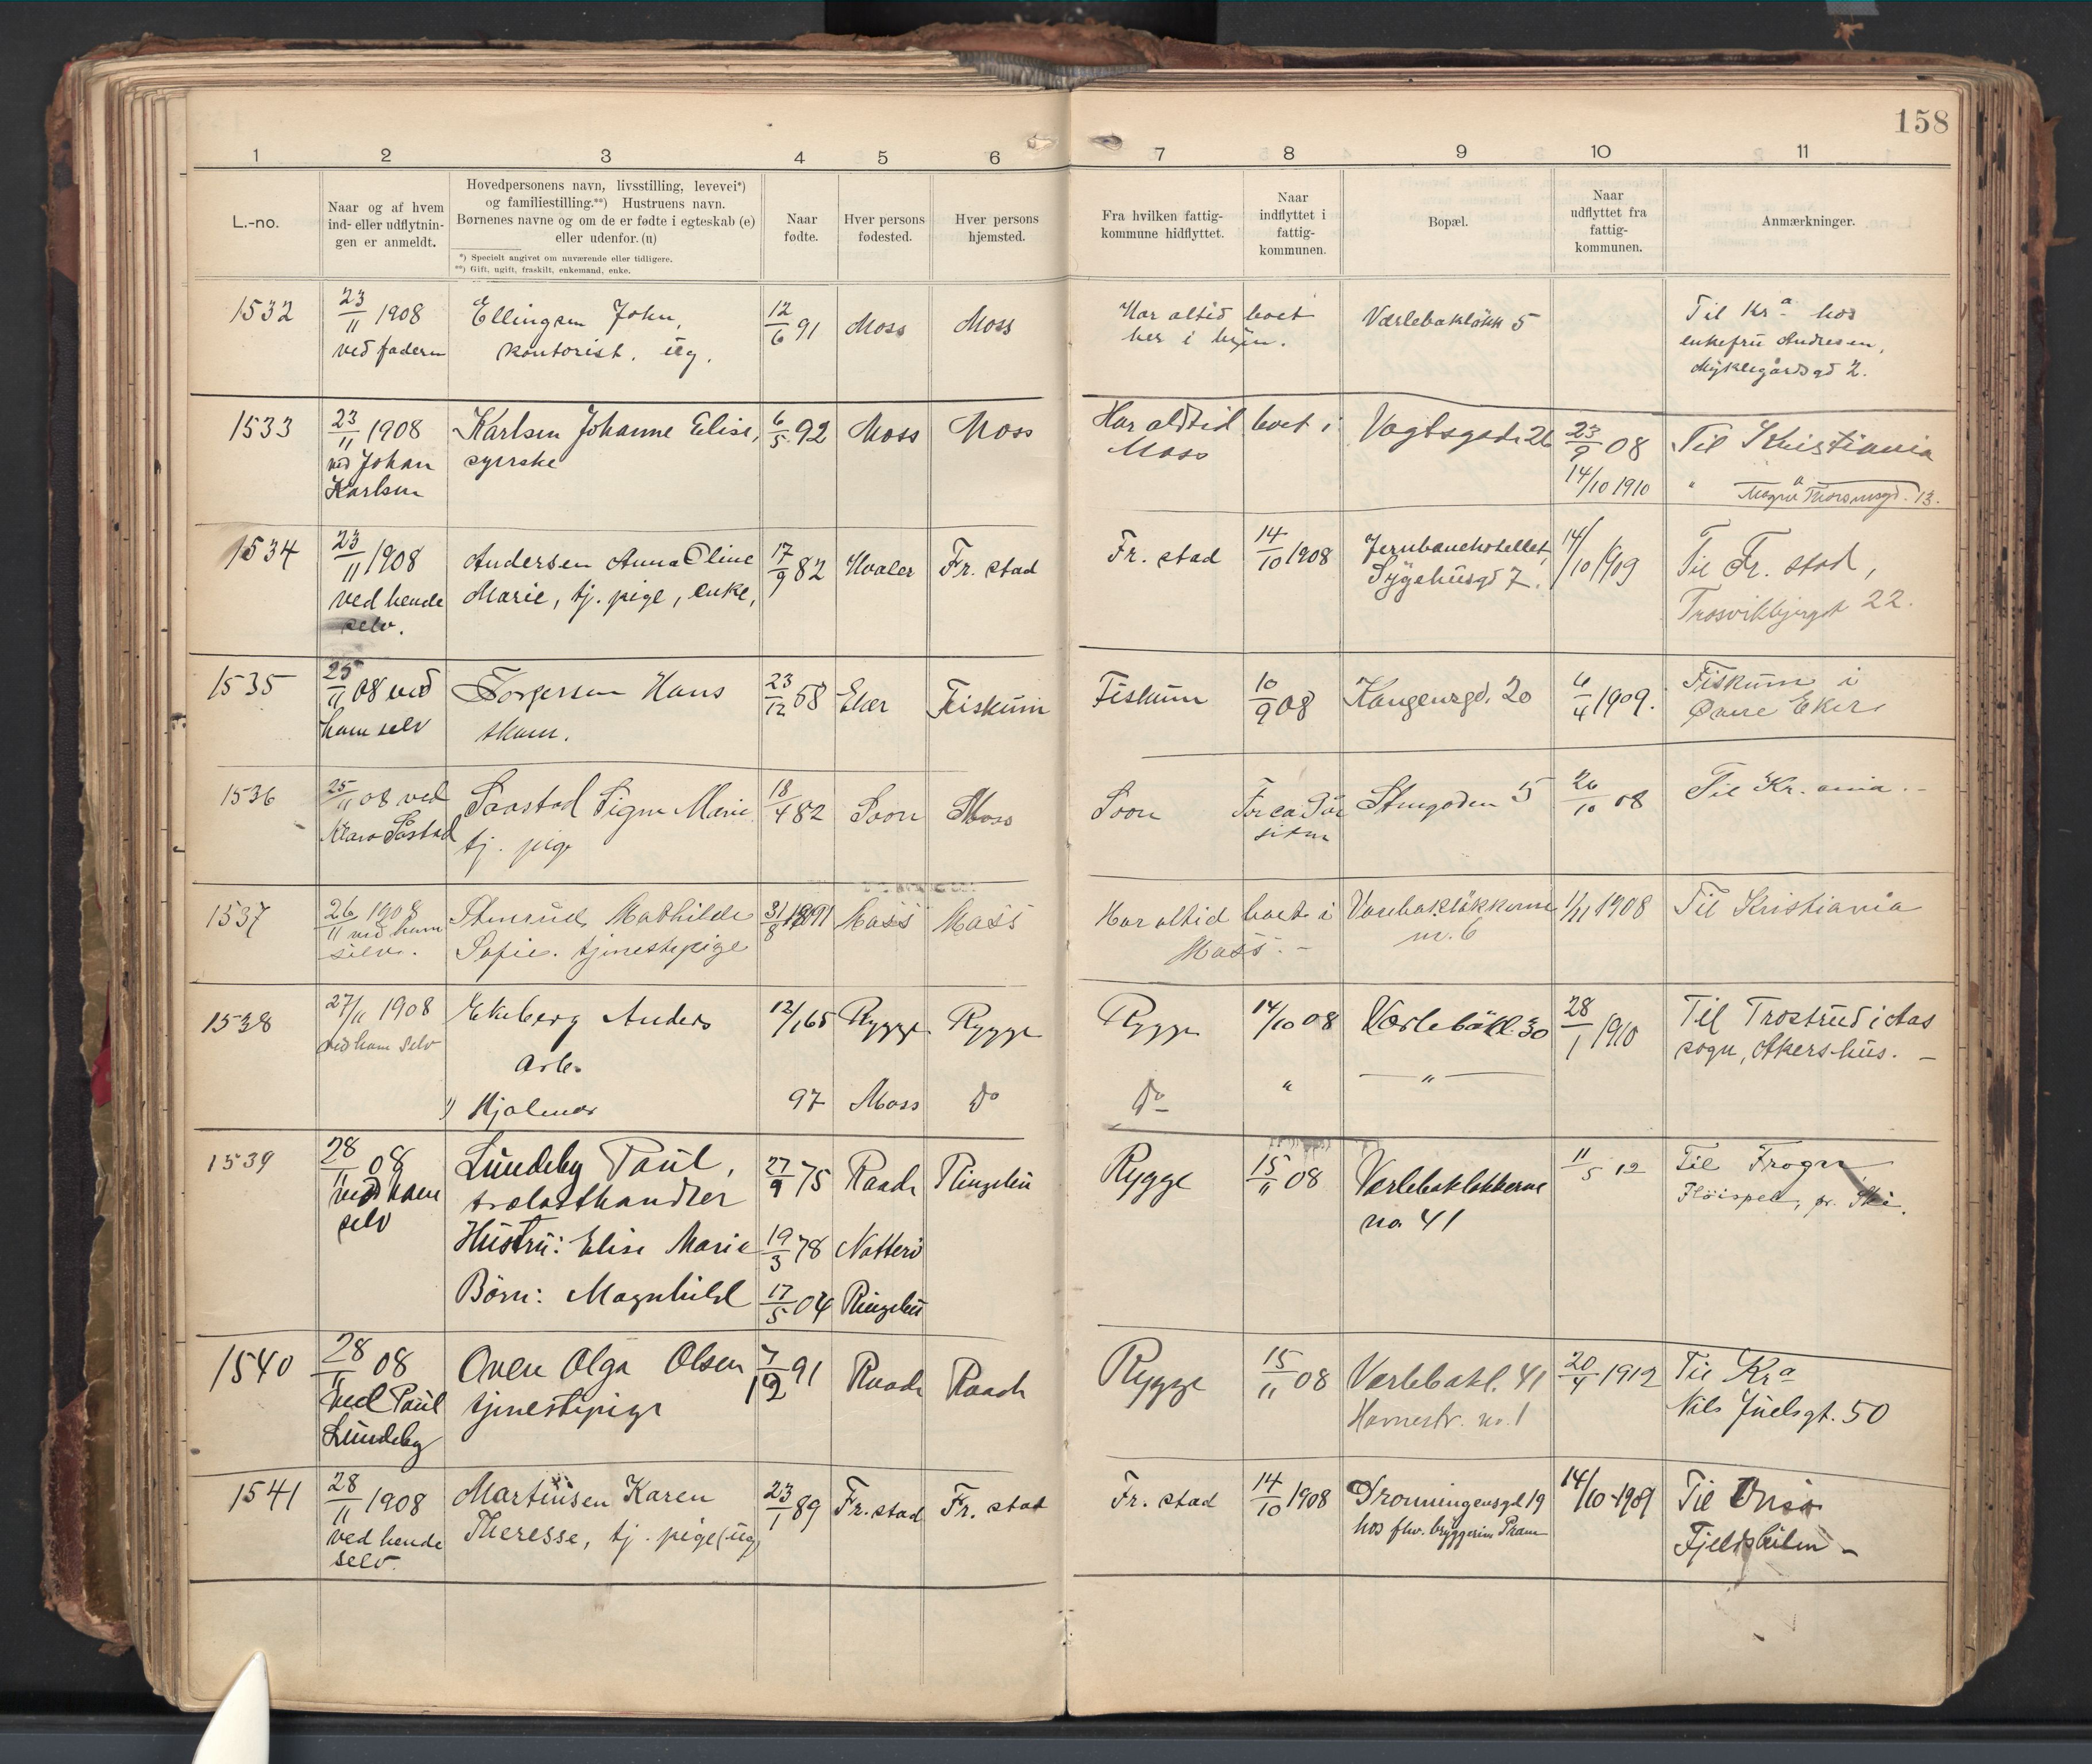 158
1 2 3 4 5 6 7 8 9 10 11
L.-no.
Naar og af hvem
ind- eller udflytnin-
gen er anmeldt.
Hovedpersonens navn, livsstilling, levevei*)
og familiestilling.**) Hustruens navn.
Børnenes navne og om de er fødte i egteskab (e)
eller udenfor. (u)
*) Specielt angivet om nuværende eller tidligere.
**) Gift, ugift, fraskilt, enkemand, enke.
Naar
fødte.
Hver persons
fødested.
Hver persons
hjemsted.
Fra hvilken fattig-
kommune hidflyttet.
Naar
indflyttet i
fattig-
kommunen.
Bopæl.
Naar
udflyttet fra
fattig-
kommunen.
Anmærkninger.
1532 23/11 1908 Ellingsen John, 12/6 91 Moss Moss Har altid boet Værlebakløkk 5 Til Kra hos
ved faderen kontorist. ug. her i byen. enkefru Andresen,
Myklegårdsgd 2.
1533 23/11 1908 Karlsen Johanne Elise, 6/5 92 Moss Moss Har altid boet i Vogtsgade 26 23/9 08 Til Kristiania
ved Johan syerske Moss 14/10 1910 " 13.
Karlsen
1534 23/11 1908 Andersen Anna Oline 17/9 82 Hvaler Fr. stad Fr. stad 14/10 1908 Jernbanehotellet, 14/10 1909 Til Fr. stad,
ved hende Marie, tj. pige, enke, Sygehusgd 7. Trosvikbjerget 22.
selv.
1535 25/11 08 ved Torgersen Hans 23/12 68 Eker Fiskum Fiskum 10/9 08 Kongensgd. 20 6/4 1909. Fiskum i
ham selv skom. Øvre Eker
1536 25/11 08 ved Saastad Signe Marie 18/4 82 Soon Moss Soon For ca 3 år Stengaden 5 26/10 08 Til Kr. ania. -
Klara Såstad tj. pige siden
1537 26/11 1908 Stensrud Mathilde 31/8 1891 Moss Moss Har altid boet i Værlebakløkkerne 1/11 1908 Til Kristiania
ved ham Sofie. tjenestepige Moss. - nr. 6
selv.
1538 27/11 1908 Ekeberg Anders 12/1 65 Rygge Rygge Rygge 14/10 08 Værlebakl. 30 28/1 1910 Til Trostrud i Aas
ved ham selv Arb. sogn, Akershus. -
1) Hjalmar 97 Moss Do Do " — " —
1539 28/11 08 Lundeby Paul, 27/9 75 Raade Ringebu Rygge 15/11 08 Værlebakløkkerne 11/5 12 Til Frogn
ved ham trælasthandler no 41 Fløispet, pr. Ski.
selv
Hustru: Elise Marie 19/3 78 Nøtterø
Børn: Magnhild 17/5 04 Ringebu
1540 28/11 08 Oven Olga Olsen 7/12 91 Raade Raade Rygge 15/11 08 Værlebakl. 41 20/4 1912 Til Kra
ved Paul tjenestepige Havnestr. no. 1 Nils Juelsgt. 50
Lundeby
1541 28/11 1908 Martinsen Karen 23/1 89 Fr. stad Fr. stad Fr. stad 14/10 1908 Dronningensgd 19 14/10 - 1909 Til Onsø
ved hende Theresse, tj. pige (ug) hos fhv. bryggerim Pram Fjeldshilen -
selv.